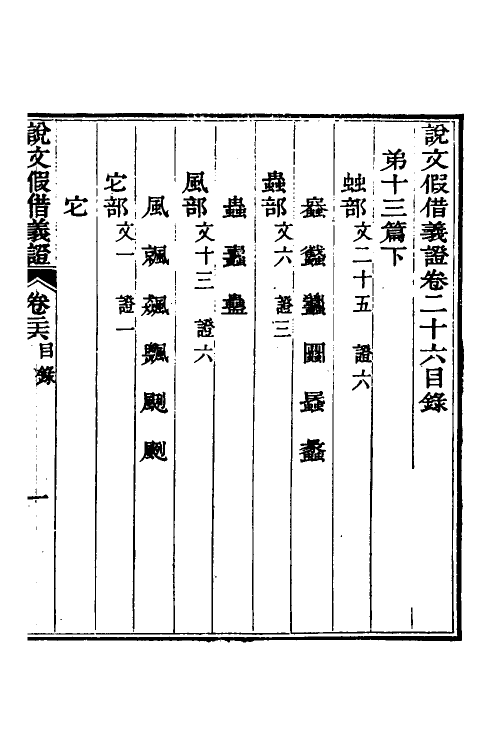 說文假借義證卷二十六目錄
弟十三篇下
䖵部 文二十五 證六
蟲部 文六 證三
蟲 蠱
風部 文十三 證六
風 飄
它部 文一 證一
它
說文假借義證 卷二十六 目錄 一